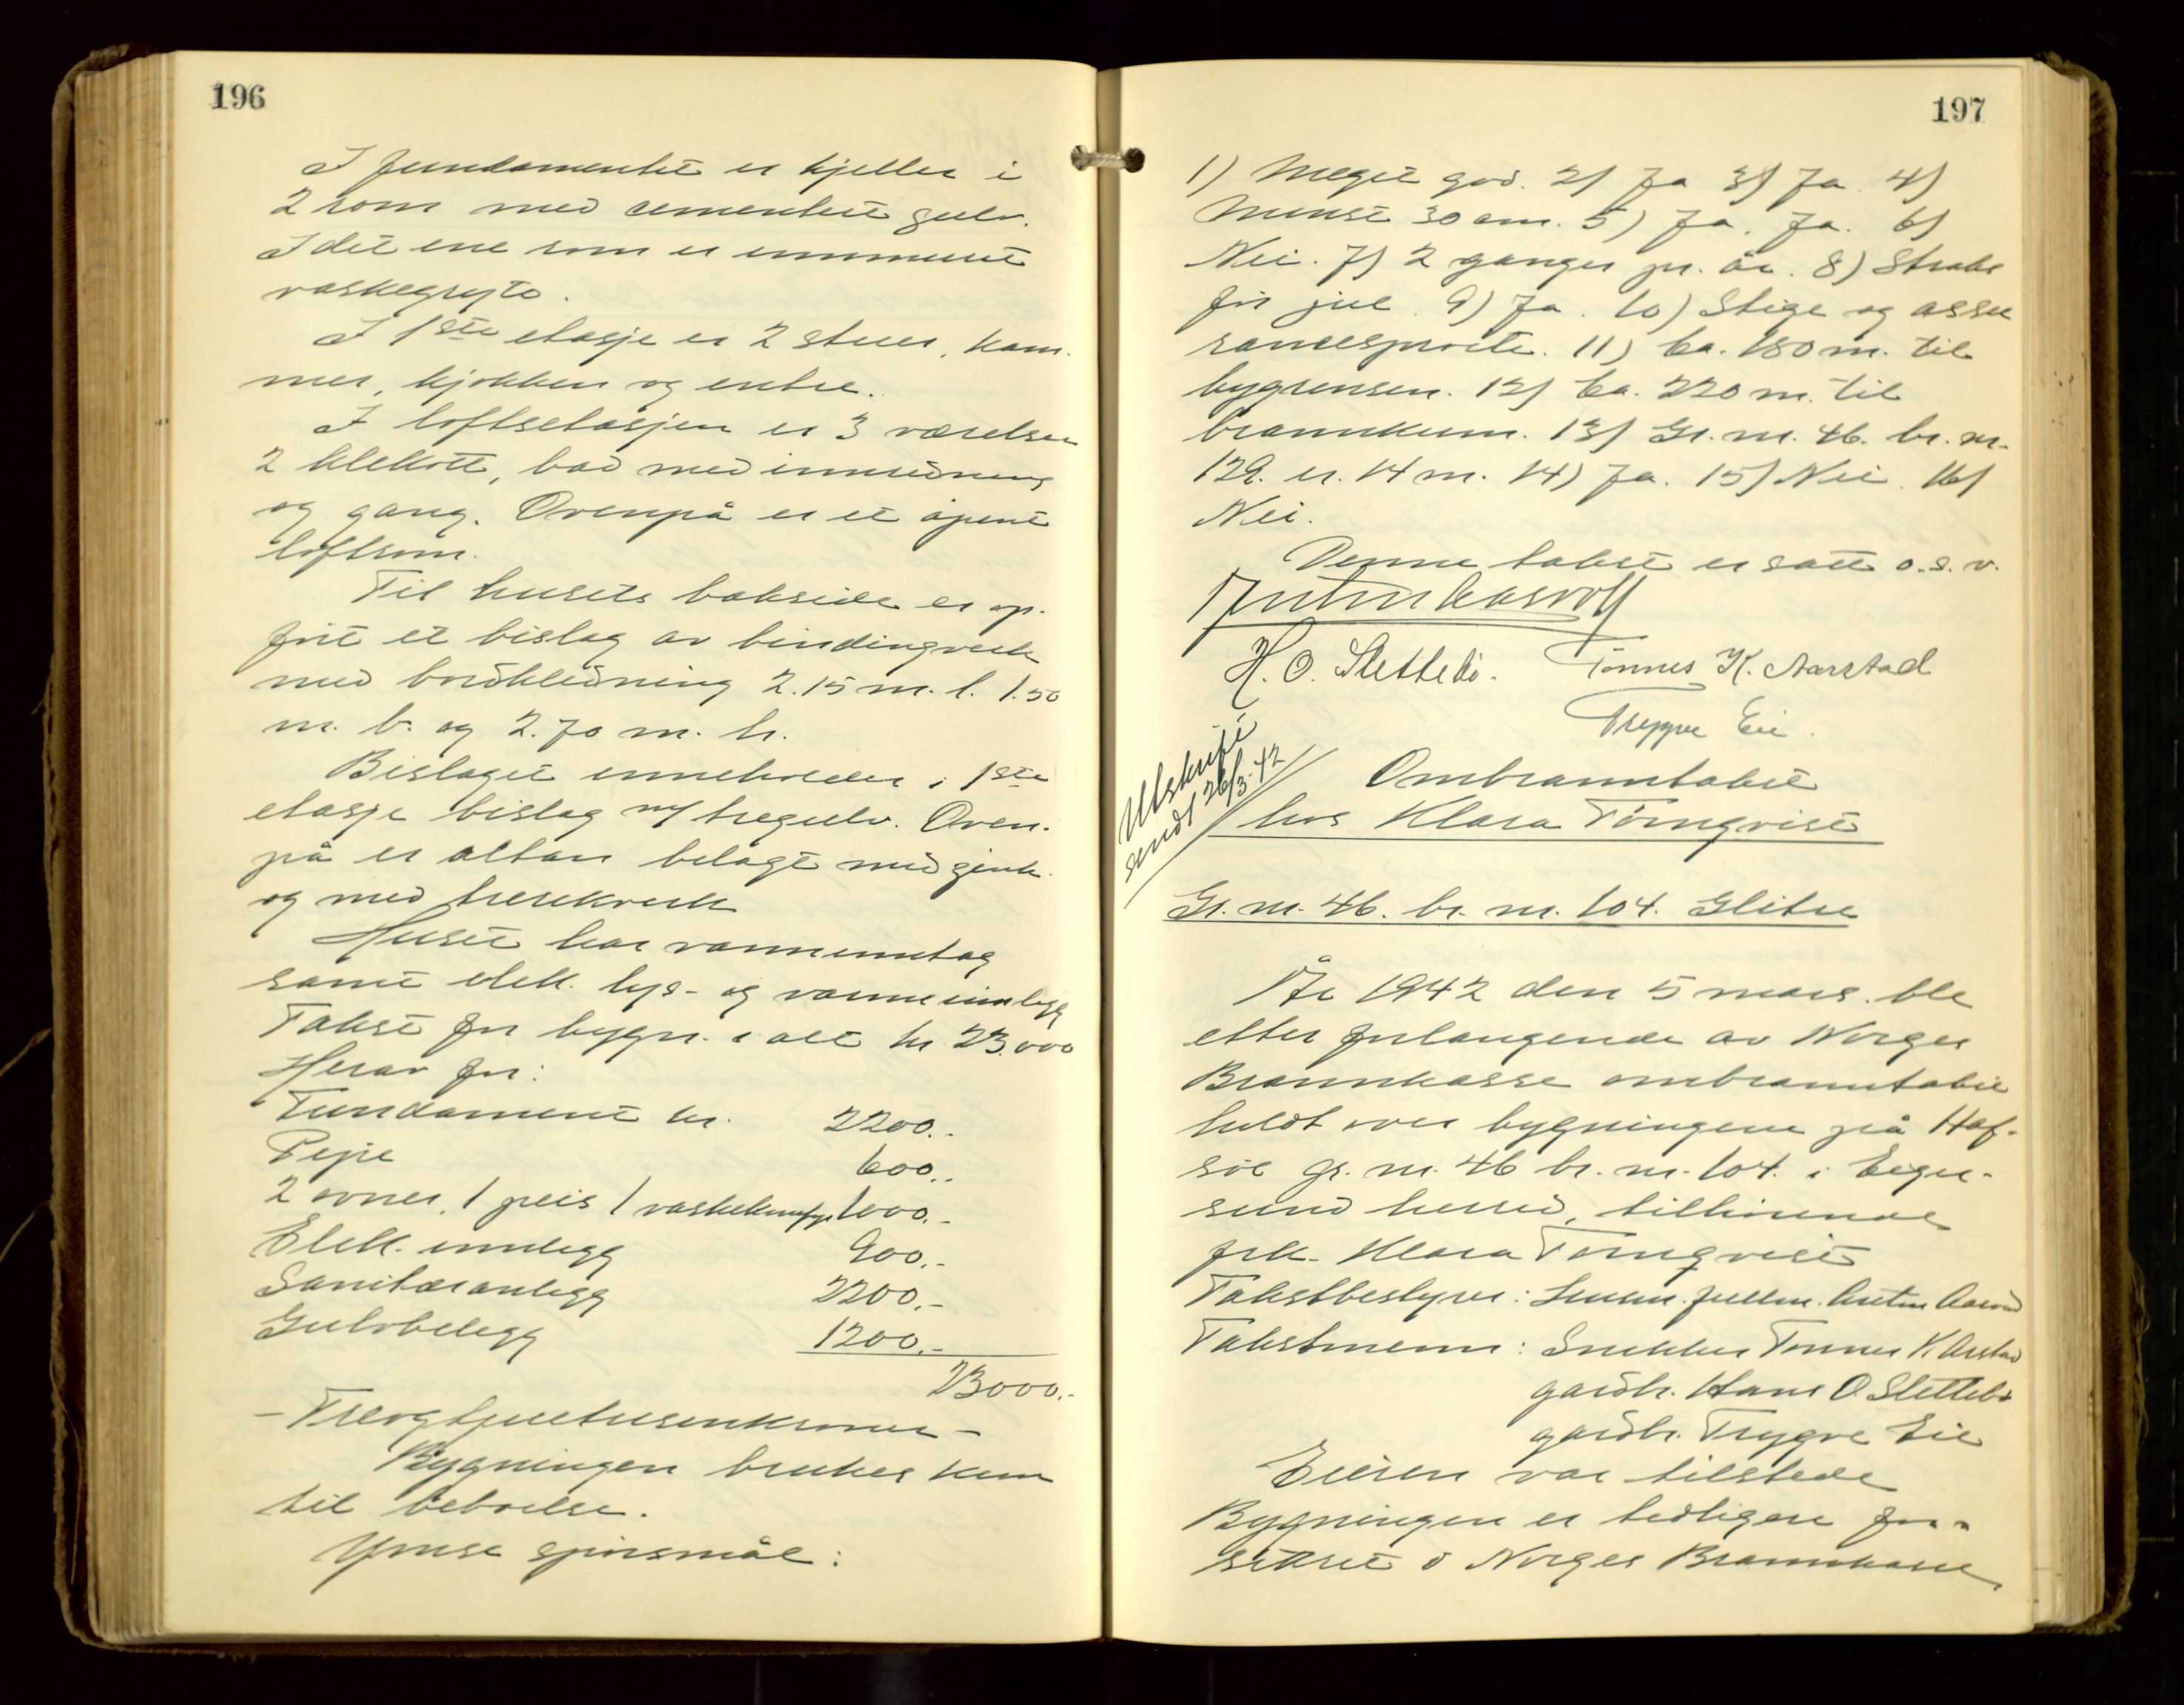 196
I fundamentet er kjeller i
2 rom med cementert gulv.
I det ene rom er innmuret
vaskegryte.
I 1ste etasje er 2 stuer, kam-
mer, kjøkken og entre.
I loftsetasjen er 3 værelser
2 klekott, bad med innredning
og gang. Ovenpå er et åpent
loftsrom.
Til husets bakside er op-
ført et bislag av bindingverk
med bordkledning 2.15 m. l. 1.50
m. b. og 2.70 m. h.
Bislaget inneholder i 1ste
etasje bislag m/ tregulv. Oven-
på er altan belagt med zink
og med trerekverk
Huset har vanninntag
samt elek. lys- og varmeinnlegg
Takst for bygn. i alt kr. 23.000
Herav for:
Fundament kr. 2200.-
Pipe 600.-
2 ovner, 1 peis 1 vaskekum 1000.-
Elek. innlegg 900.-
Sanitæranlegg 2200.-
Gulvbelegg 1200.-
23000.-
- Treogtjuetusenkroner -
Bygningen brukes kun
til beboelse.
Ymse spørsmål:
197
1) Meget god. 2) Ja 3) Ja. 4)
Minst 30 cm. 5) Ja. Ja. 6)
Nei. 7) 2 ganger pr. år. 8) Straks
før jul. 9) Ja. 10) Stige og assu
ransesprøite. 11) Ca. 180 m. til
bygrensen. 12) Ca. 220 m. til
brannkum. 13) Gr. nr. 46. br. nr.
129. er. 14 m. 14) Ja. 15) Nei. 16)
Nei.
Denne takst er satt o.s.v.
H. O. Slettebø. Tønnes K. Aarstad
Trygve Eie.
Utskrift
sendt 26/3-42
Ombranntakst
hos Klara Tørnqvist
Gr. nr. 46. br. nr. 104. Glitre
År 1942 den 5 mars. ble
etter forlangende av Norges
Brannkasse ombranntakst
holdt over bygningene på Haf-
søe gr. nr. 46 br. nr. 104. i Eiger-
sund herred, tilhørende
frk. Klara Tørnqvist
Takstbestyrer: Lensm. fullm. Anton
Takstmenn: Snekker Tønnes K. Arstad
gårdbr. Hans O. Slettebø
gårdbr. Trygve Eie
Eieren var tilstede
Bygningen er tidligere for-
sikret i Norges Brannkasse